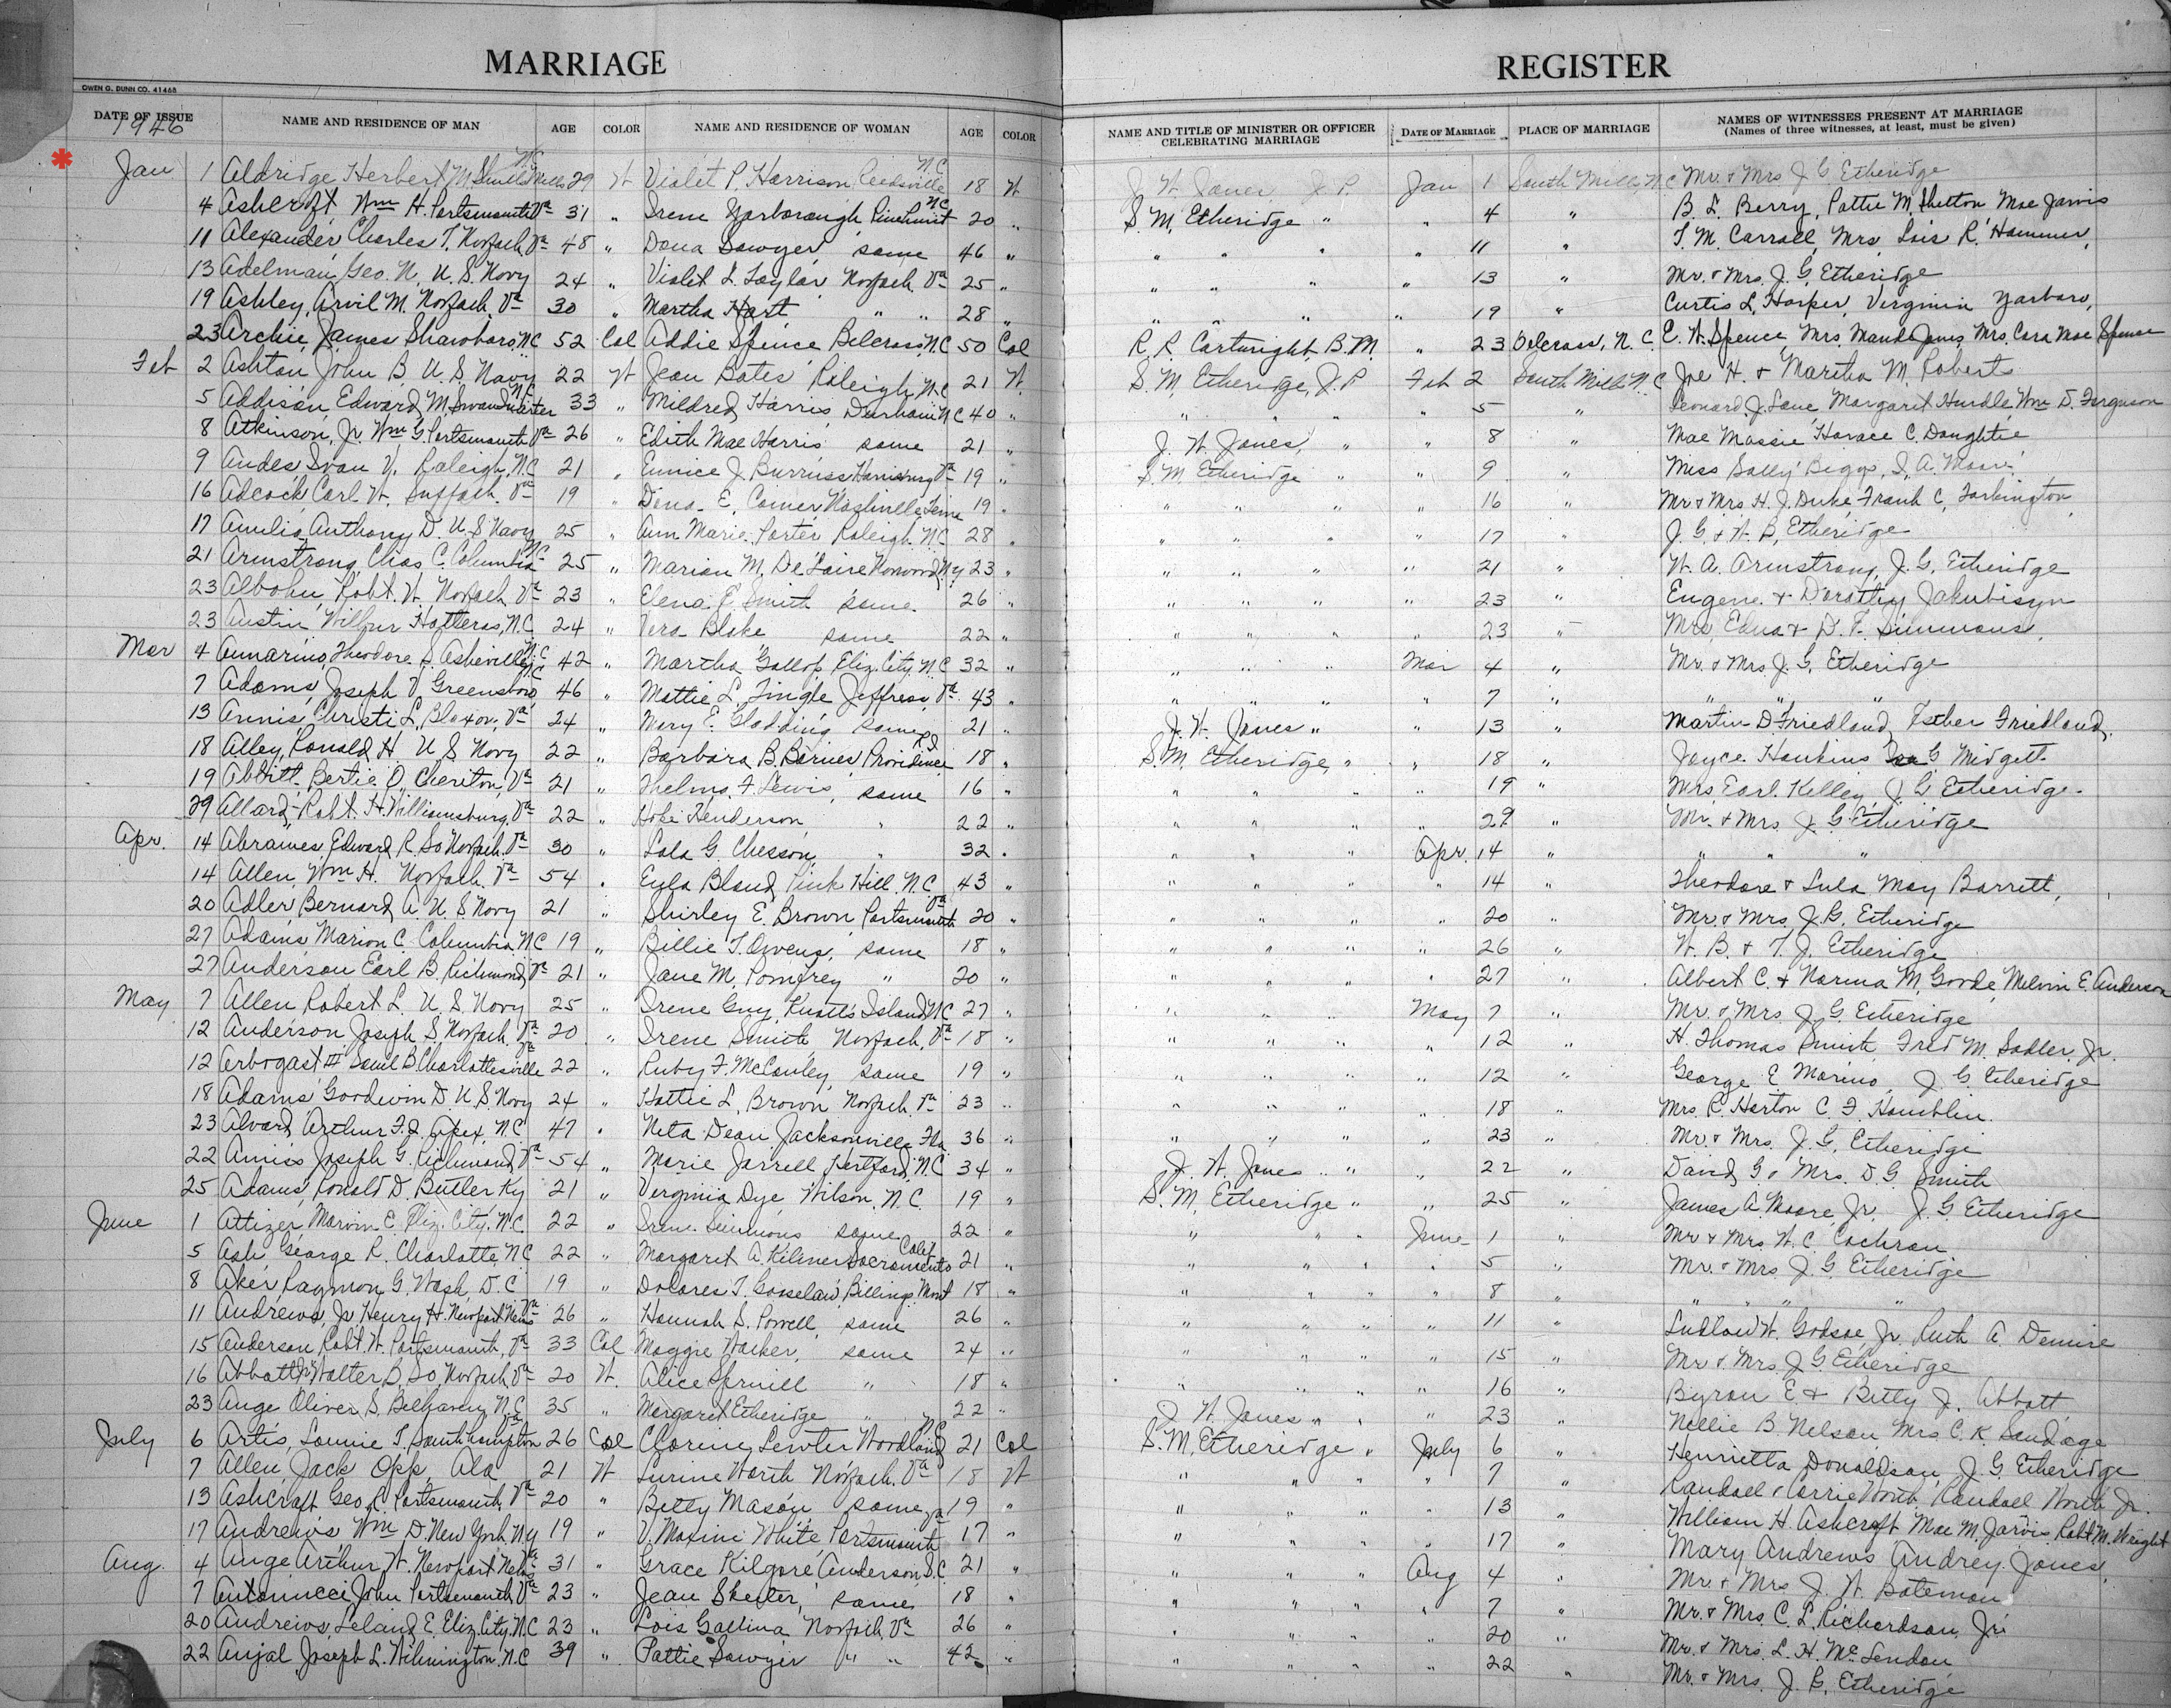 MARRIAGE REGISTER
OWEN G. DUNN CO. 41468
DATE OF ISSUE NAME AND RESIDENCE OF MAN AGE COLOR NAME AND RESIDENCE OF WOMAN AGE COLOR NAME AND TITLE OF MINISTER OR OFFICER CELEBRATING MARRIAGE DATE OF MARRIAGE PLACE OF MARRIAGE NAMES OF WITNESSES PRESENT AT MARRIAGE (Names of three witnesses, at least, must be given)
1946
Jan 1 Aldridge Herbert M. N.C. 29 W Violet P. Harrison, Reedsville N.C. 18 W J. W. Jones J.P. Jan 1 South Mills, N.C. Mr. & Mrs J. G. Etheridge
4 Ashcroft, Wm H. Portsmouth Va 31 " Irene Yarborough, Pinehurst N.C. 20 " S. M. Etheridge " " 4 " B. L. Berry, Pattie M. Shelton Mae Jarvis
11 Alexander, Charles T. Norfolk, Va 48 " Dona Sawyer, same 46 " " " " " 11 " T. M. Carroll, Mrs Lois R. Hammer,
13 Adelman, Geo. N. U.S. Navy 24 " Violet L. Taylor Norfolk, Va 25 " " " " " 13 " Mr. & Mrs. J. G. Etheridge
19 Ashley, Arvil M. Norfolk, Va 30 " Martha Hart " " 28 " " " " " 19 " Curtis L. Harper, Virginia Yarboro,
23 Archie, James Shawboro, N.C 52 Col Addie Spence Belcross, N.C 50 Col R. R. Cartwright, B.M. " 23 Belcross, N.C. E. W. Spence, Mrs. Maude Jones, Mrs. Cora Mae Spence
Feb 2 Ashton John B. U.S. Navy 22 W Jean Bates Raleigh, N.C 21 W S. M. Etheridge, J.P Feb 2 South Mills N.C Joe H. & Martha M. Roberts
5 Addison, Edward M. Swanquarter N.C 33 " Mildred Harris, Durham N.C 40 " " " " 5 " Leonard J. Lane, Margaret Hurdle, Wm D. Ferguson
8 Atkinson, Jr. Wm G. Portsmouth Va 26 " Edith Mae Harris same 21 " J. W. Jones, " " 8 " Mae Massie, Horace C. Doughtie
9 Andes Ivan V. Raleigh, N.C 21 " Eunice J. Burruss Va 19 " S. M. Etheridge " " 9 " Miss Sally Biggs, I. A. Moore
16 Adcock, Carl W. Suffolk, Va 19 " Dena E. Comer Nashville, Tenn 19 " " " " " 16 " Mr & Mrs H. J. Duke, Frank C. Tarkington
17 Amelio, Anthony D. U.S. Navy 25 " Ann Marie Porter Raleigh, N.C 28 " " " " " 17 " J. G. & W. B. Etheridge
21 Armstrong, Chas C. Columbia N.C 25 " Marion M. De Laire Norwood, N.Y 23 " " " " " 21 " W. A. Armstrong, J. G. Etheridge
23 Albohn, Robt. W. Norfolk, Va 23 " Elena E. Smith same 26 " " " " " 23 " Eugene & Dorothy Jakubisyn
23 Austin Wilbur Hatteras, N.C. 24 " Vera Blake same 22 " " " " " 23 " Mrs. Edna & D. F. Simmons,
Mar 4 Annarino, Theodore S. Asheville, N.C 42 " Martha Gallop, Eliz. City, N.C 32 " " " " Mar 4 " Mr. & Mrs. J. G. Etheridge
7 Adams, Joseph V. Greensboro N.C 46 " Mattie L. Tingle Jeffress, Va 43 " " " " " 7 " " " "
13 Annis, Christi L. Bloxom, Va 24 " Mary E. Gladding same 21 " J. W. Jones " " 13 " Martin D. Friedland, Esther Friedland,
18 Alley, Ronald H. U.S Navy 22 " Barbara B. Barnes, Providence R.I 18 " S. M. Etheridge, " " 18 " Joyce Hankins G Midgett
19 Abbitt, Bertie O. Cheriton, Va 21 " Thelma F. Lewis, same 16 " " " " " 19 " Mrs Earl Kelley, J. G. Etheridge.
29 Allard, Robt. H. Williamsburg, Va 22 " Hope Henderson, " 22 " " " " " 29 " Mr. & Mrs. J. G. Etheridge
Apr. 14 Abrames, Edward R. So Norfolk, Va 30 " Lola G. Chesson, " 32 " " " " Apr. 14 " " " "
14 Allen, Wm H. Norfolk, Va 54 " Eula Bland, Pink Hill, N.C 43 " " " " " 14 " Theodore & Lula May Barrett,
20 Adler, Bernard A. U.S Navy 21 " Shirley E. Brown Portsmouth Va 20 " " " " " 20 " Mr. & Mrs. J. G. Etheridge
27 Adams Marion C. Columbia N.C 19 " Billie T. Owens, same 18 " " " " 26 " W. B. & T. J. Etheridge
27 Anderson Earl B. Richmond, Va 21 " Jane M. Pomfrey " 20 " " " " 27 " Albert C. & Norma M. Goode, Melvin E. Anderson
May 7 Allen Robert L. U.S. Navy 25 " Irene Guy, Knotts Island N.C 27 " " " " May 7 " Mr. & Mrs. J. G. Etheridge
12 Anderson Joseph S. Norfolk, Va 20 " Irene Smith Norfolk, Va 18 " " " " " 12 " H. Thomas Smith, Fred M. Sadler, Jr.
12 Arbogast III Saml B. Charlottesville Va 22 " Ruby F. McCauley, same 19 " " " " " 12 " George E. Marino, J. G. Etheridge
18 Adams Goodwin D. U.S. Navy 24 " Hattie L. Brown Norfolk, Va 23 " " " " " 18 " Mrs. R. Horton C. F. Hamblin.
23 Alvord, Arthur F. Apex, N.C. 47 " Neta Dean Jacksonville, Fla 36 " " " " " 23 " Mr. & Mrs. J. G. Etheridge
22 Amiss Joseph G. Richmond, Va 54 " Marie Jarrell Hertford, N.C 34 " J. W. Jones " " " 22 " David G & Mrs. D. G. Smith
25 Adams, Ronald D. Butler Ky 21 " Virginia Dye Wilson, N.C. 19 " S. M. Etheridge " " 25 " James A. Moore, Jr. J. G. Etheridge
June 1 Marvin E. Eliz. City, N.C. 22 " Irene Simmons same 22 " " " " June 1 " Mr & Mrs. W. C. Cochran
5 Ash George R. Charlotte, N.C 22 " Margaret A. Sacramento Calif 21 " " " " " 5 " Mr. & Mrs. J. G. Etheridge
8 Aker, Raymon G. Wash, D.C 19 " Dolores T. Gosselaw, Billings Mont 18 " " " " " 8 " " " "
11 Andrews, Jr Henry H. Newport News Va 26 " Hannah S. Powell, same 26 " " " " " 11 " Ludlow W. Godsoe, Jr. Ruth A. Demire
15 Anderson Robt. W. Portsmouth, Va 33 Col Maggie Walker, same 24 " " " " " 15 " Mr. & Mrs. J. G. Etheridge
16 Abbott Jr Walter B. So. Norfolk Va 20 W. Alice Spruill " 18 " " " " " 16 " Byron E & Betty J. Abbott,
23 Ange Oliver S. Belhaven, N.C 35 " Margaret Etheridge " 22 " J. W. Jones " " " 23 " Nellie B. Nelson Mrs C. K. Sandage
July 6 Artis, Lonnie T. Southhampton Va 26 Col Clorine Lewter Woodland N.C 21 Col S. M. Etheridge " July 6 " Henrietta Donaldson, J. G. Etheridge
7 Allen, Jack Opp, Ala 21 W Lurine North Norfolk, Va 18 W " " " " 7 " Randall & Carrie North, Randall North Jr.
13 Ashcraft Geo R. Portsmouth, Va 20 " Betty Mason, same 19 " " " " " 13 " William H. Ashcraft Mae M. Jarvis, Robt M. Wright
17 Andrews Wm D. New York, N.Y 19 " V. Maxine White, Portsmouth Va 17 " " " " " 17 " Mary Andrews Audrey Jones,
Aug. 4 Ange Arthur W. Newport News Va 31 " Grace Kilgore Anderson S.C. 21 " " " " Aug 4 " Mr. & Mrs. J. W. Bateman
7 Antonucci John Portsmouth, Va 23 " Jean Shelter, same 18 " " " " " 7 " Mr. & Mrs. C. L. Richardson, Jr.
20 Andrews, Leland E. Eliz. City, N.C 23 " Lois Gallina Norfolk, Va 26 " " " " " 20 " Mr. & Mrs. L. H. McLendon
22 Anjal, Joseph L. Wilmington, N.C 39 " Pattie Sawyer " " 42 " " " " " 22 " Mr. & Mrs. J. G. Etheridge